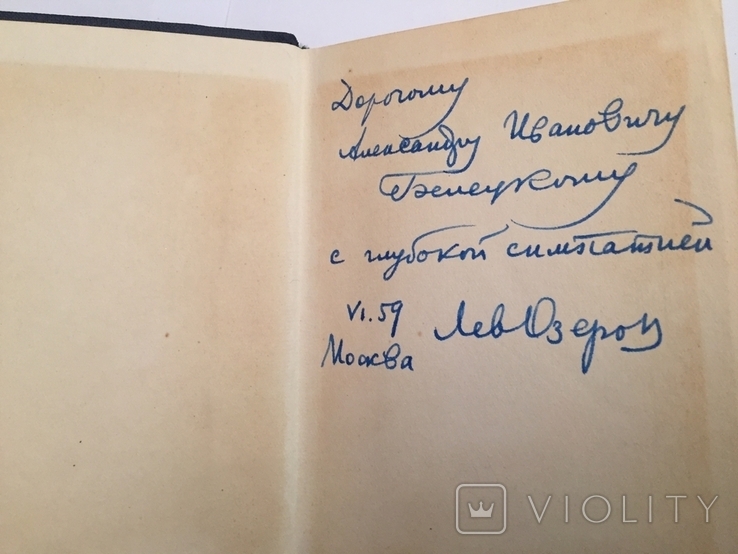 Дорогому
Александру Ивановичу
Белецкому
с глубокой симпатией
VI.59
Лев Озеров
Москва
VIOLITY